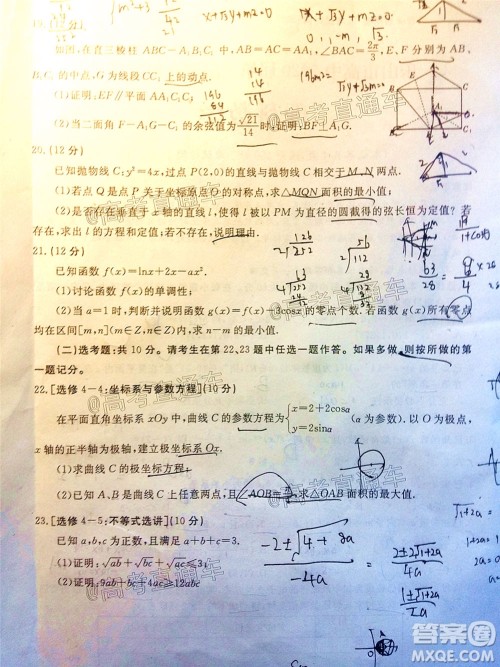 19.(12分)
如图,在直三棱柱 ABC-A₁B₁C₁ 中,AB=AC=AA₁,∠BAC=2π/3,E、F 分别为 AB、
B₁C₁ 的中点,G 为线段 CC₁ 上的动点.
(1)证明:EF∥平面 AA₁C₁C;
(2)当二面角 F-A₁G-C₁ 的余弦值为 √21/14 时,证明:BF⊥A₁G.
20.(12分)
已知抛物线 C:y²=4x,过点 P(2,0)的直线与抛物线 C 相交于 M,N 两点.
(1)若点 Q 是点 P 关于坐标原点 O 的对称点,求△MQN 面积的最小值;
(2)是否存在垂直于 x 轴的直线 l,使得 l 被以 PM 为直径的圆截得的弦长恒为定值?若存
在,求出 l 的方程和定值;若不存在,说明理由.
21.(12分)
已知函数 f(x)=lnx+2x-ax².
(1)讨论函数 f(x)的单调性;
(2)当 a=1 时,判断并说明函数 g(x)=f(x)+3cosx 的零点个数.若函数 g(x)所有零点
均在区间[m,n](m∈Z,n∈Z)内,求 n-m 的最小值.
(二)选考题:共 10 分。请考生在第 22、23 题中任选一题作答。如果多做,则按所做的第
一题记分。
22.[选修 4-4:坐标系与参数方程](10分)
在平面直角坐标系 xOy 中,曲线 C 的参数方程为{x=2+2cosα
y=2sinα (α 为参数).以 O 为极点,
x 轴的正半轴为极轴,建立极坐标系 Ox.
(1)求曲线 C 的极坐标方程;
(2)已知 A,B 是曲线 C 上任意两点,且∠AOB=
,求△OAB 面积的最大值.
23.[选修 4-5:不等式选讲](10分)
已知 a,b,c 为正数,且满足 a+b+c=3.
(1)证明:√ab+√bc+√ac≤3;
(2)证明:9ab+bc+4ac≥12abc
高考直通车
高考直通车
高考直通车
高考直通车
14
14
196
126
2√252
56
2√112
63
4√252
28
4√112
63/28
=9/4
-2±√4+8a
-4a
=
2±2√1+2a
4a
1±√1+2a
2a
答案圈
MXQE.COM